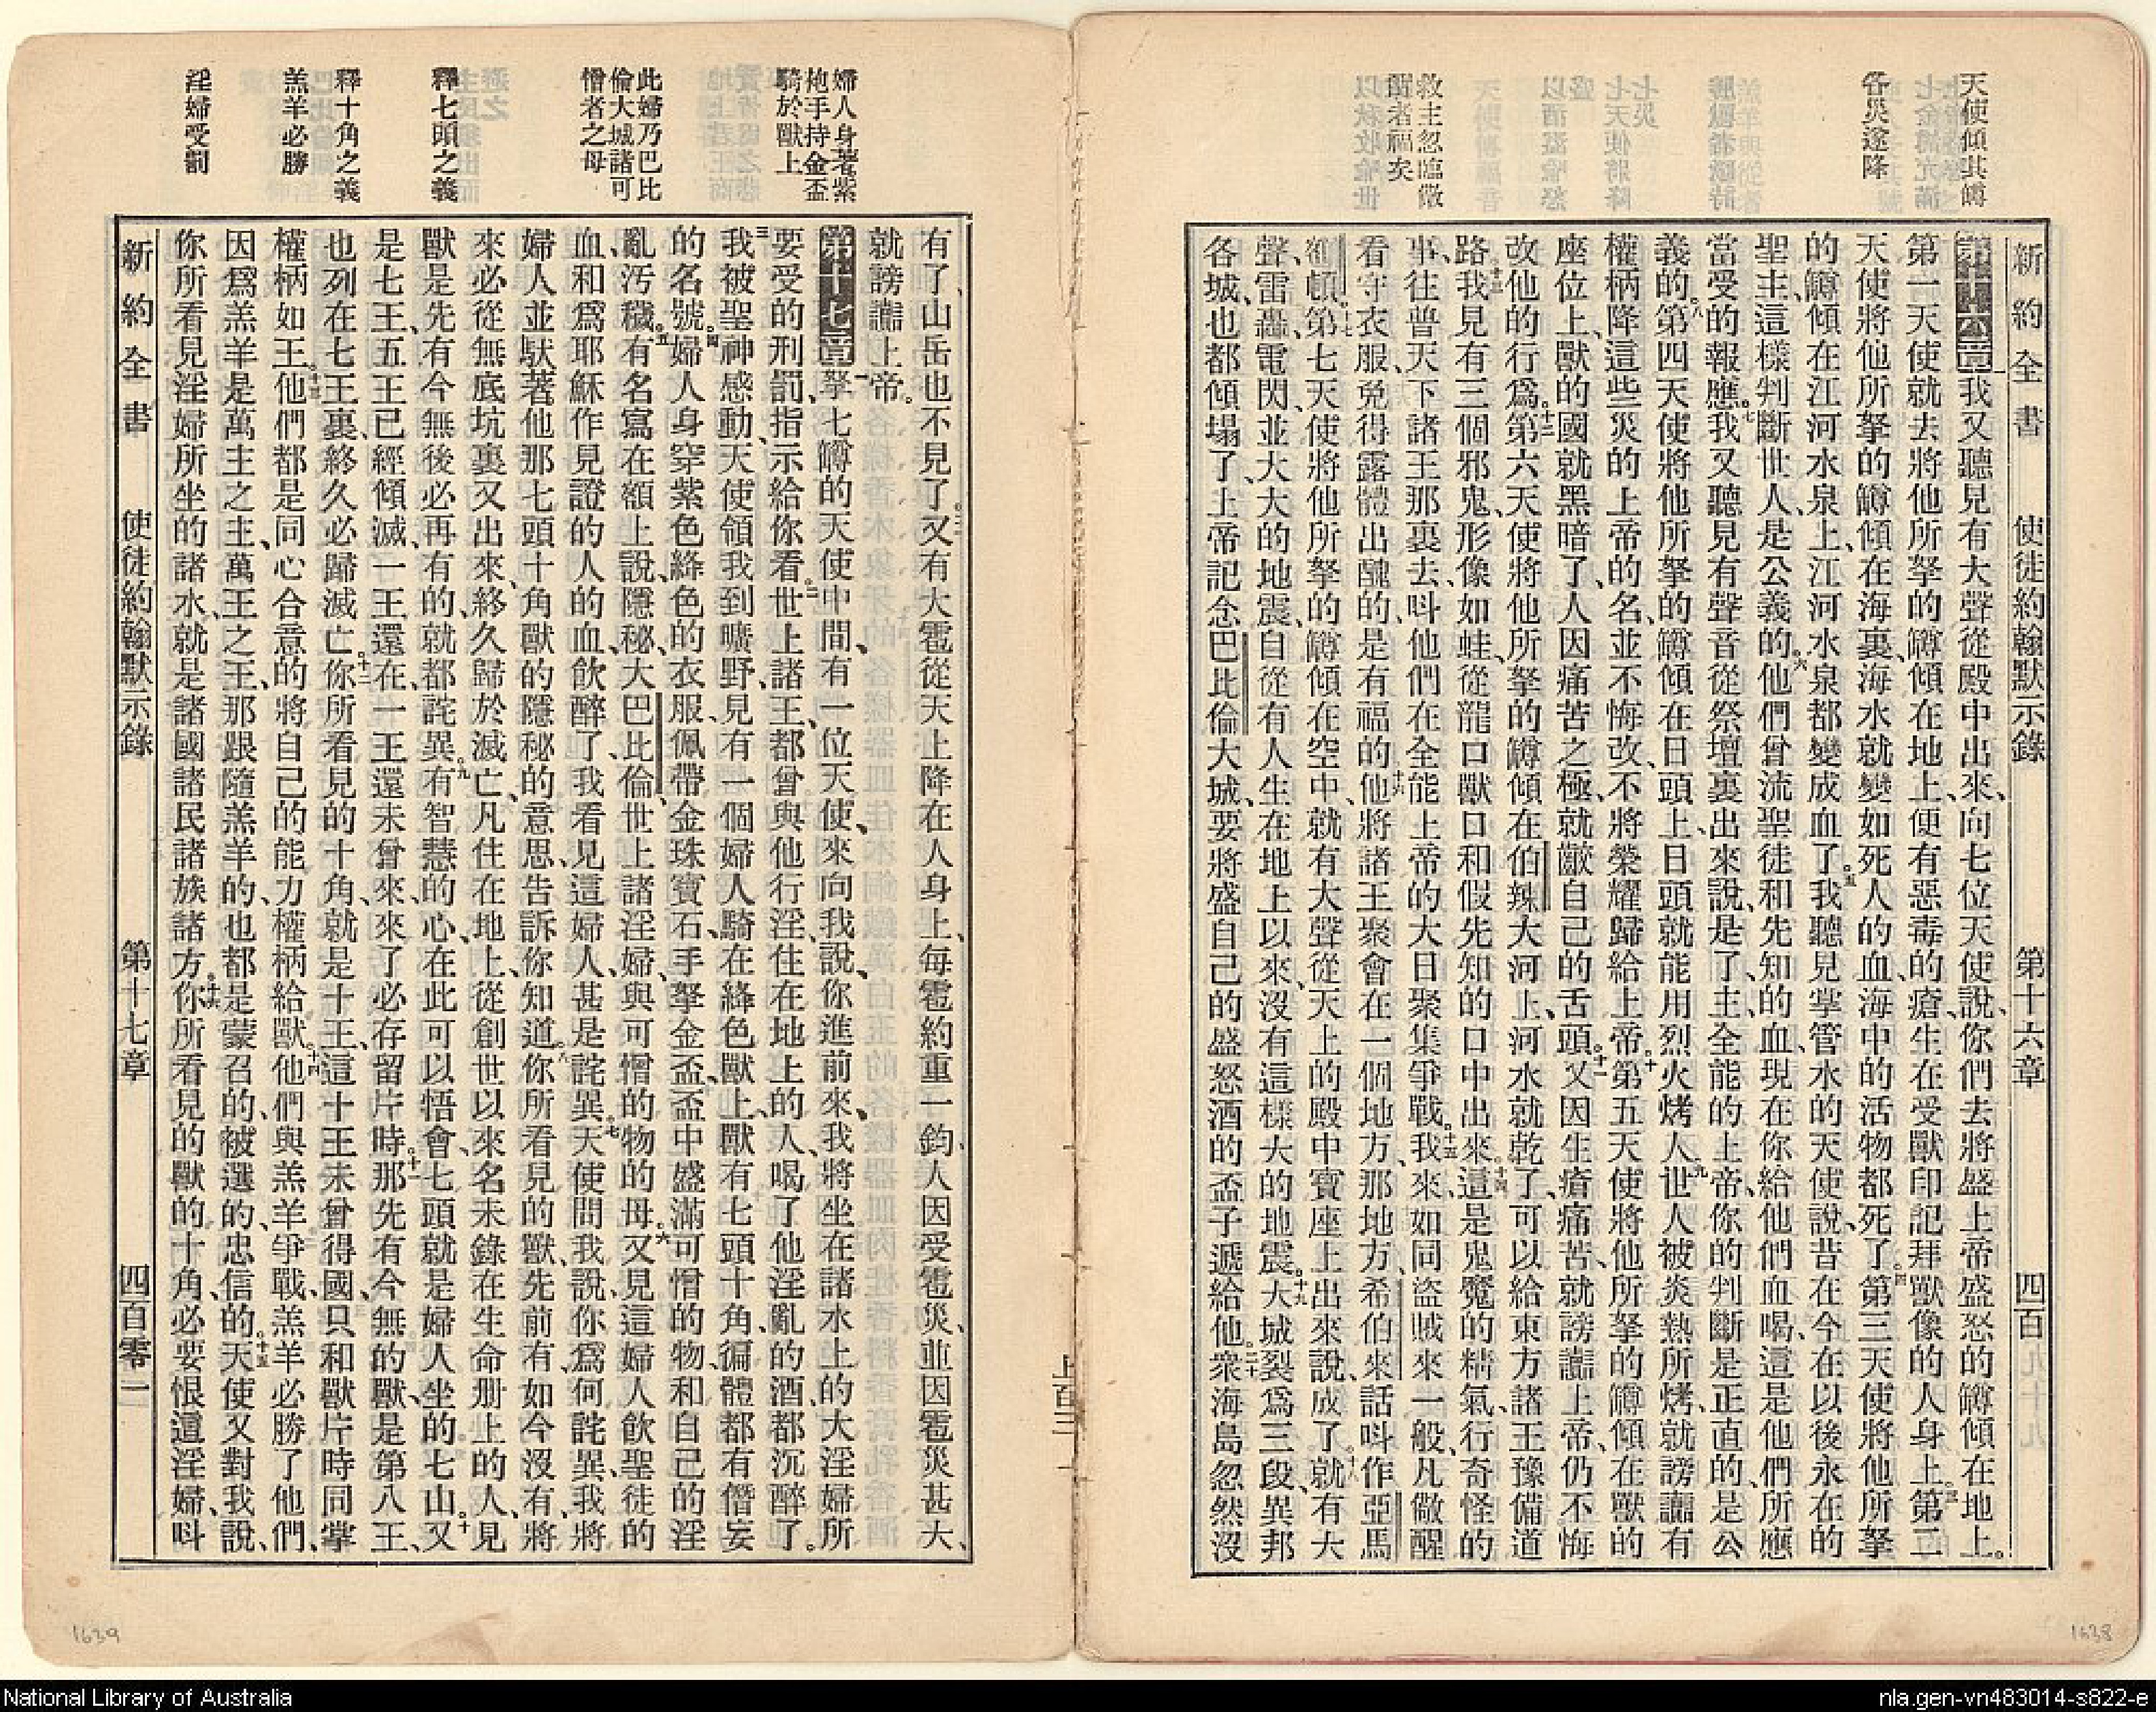 新約全書　使徒約翰默示錄　第十六章　四百
天使傾其罇
各災遂降
救主忽臨儆
醒者福矣
第十六章我又聽見有大聲從殿中出來、向七位天使說、你們去將盛上帝盛怒的罇傾在地上。
第一天使就去將他所拏的罇傾在地上、便有惡毒的瘡生在受獸印記拜獸像的人身上。三第二
天使將他所拏的罇傾在海裏、海水就變如死人的血、海中的活物都死了。四第三天使將他所拏
的罇傾在江河水泉上、江河水泉都變成血了。五我聽見掌管水的天使說、昔在今在以後永在的
聖主、這樣判斷世人是公義的。六他們曾流聖徒和先知的血、現在你給他們血喝、這是他們所應
當受的報應。七我又聽見有聲音從祭壇裏出來說、是了、主全能的上帝、你的判斷是正直的、是公
義的。八第四天使將他所拏的罇傾在日頭上、日頭就能用烈火烤人。九世人被炎熱所烤、就謗讟有
權柄降這些災的上帝的名、並不悔改、不將榮耀歸給上帝。十第五天使將他所拏的罇傾在獸的
座位上、獸的國就黑暗了、人因痛苦之極、就齩自己的舌頭。十一又因生瘡痛苦、就謗讟上帝、仍不悔
改他的行爲。十二第六天使將他所拏的罇傾在伯辣大河上、河水就乾了、可以給東方諸王豫備道
路。十三我見有三個邪鬼、形像如蛙、從龍口獸口和假先知的口中出來。十四這是鬼魔的精氣、行奇怪的
事、往普天下諸王那裏去、呌他們在全能上帝的大日聚集爭戰。十五我來、如同盜賊來一般、凡儆醒
看守衣服、免得露體出醜的、是有福的。十六他將諸王聚會在一個地方、那地方、希伯來話呌作亞馬
額頓。十七第七天使將他所拏的罇傾在空中、就有大聲從天上的殿中寶座上出來說、成了。十八就有大
聲、雷轟、電閃、並大大的地震、自從有人生在地上以來、沒有這樣大的地震。十九大城裂爲三段、異邦
各城、也都傾塌了、上帝記念巴比倫大城、要將盛自己的盛怒酒的盃子遞給他。二十衆海島忽然沒
婦人身著紫
袍手持金盃
騎於獸上
此婦乃巴比
倫大城諸可
憎者之母
釋七頭之義
釋十角之義
羔羊必勝
淫婦受罰
有了、山岳也不見了。二一又有大雹從天上降在人身上、每雹約重一鈞、人因受雹災、並因雹災甚大、
就謗讟上帝。
第十七章一拏七罇的天使中間、有一位天使、來向我說、你進前來、我將坐在諸水上的大淫婦所
要受的刑罰、指示給你看。二世上諸王、都曾與他行淫、住在地上的人、喝了他淫亂的酒、都沉醉了。
三我被聖神感動、天使領我到曠野、見有一個婦人、騎在絳色獸上、獸有七頭十角、徧體都有僭妄
的名號。四婦人身穿紫色絳色的衣服、佩帶金珠寶石、手拏金盃、盃中盛滿可憎的物、和自己的淫
亂汚穢。五有名寫在額上說、隱秘、大巴比倫、世上諸淫婦、與可憎的物的母。六又見這婦人飲聖徒的
血、和爲耶穌作見證的人的血、飲醉了、我看見這婦人、甚是詫異。七天使問我說、你爲何詫異、我將
婦人並馱著他那七頭十角獸的隱秘的意思、告訴你知道。八你所看見的獸、先前有、如今沒有、將
來必從無底坑裏又出來、終久歸於滅亡、凡住在地上、從創世以來名未錄在生命册上的人、見
獸是先有今無後必再有的、就都詫異。九有智慧的心、在此可以悟會、七頭就是婦人坐的七山。十又
是七王、五王已經傾滅、一王還在、一王還未曾來、來了必存留片時。十一那先有今無的獸、是第八王、
也列在七王裏、終久必歸滅亡。十二你所看見的十角、就是十王、這十王未曾得國、只和獸片時同掌
權柄如王。十三他們都是同心合意的、將自己的能力權柄給獸。十四他們與羔羊爭戰、羔羊必勝了他們、
因爲羔羊是萬主之主、萬王之王、那跟隨羔羊的、也都是蒙召的、被選的、忠信的。十五天使又對我說、
你所看見淫婦所坐的諸水、就是諸國諸民諸族諸方。十六你所看見的獸的十角、必要恨這淫婦、呌
新約全書　使徒約翰默示錄　第十七章　四百零一
1639
1638
National Library of Australia
nla.gen-vn483014-s822-e